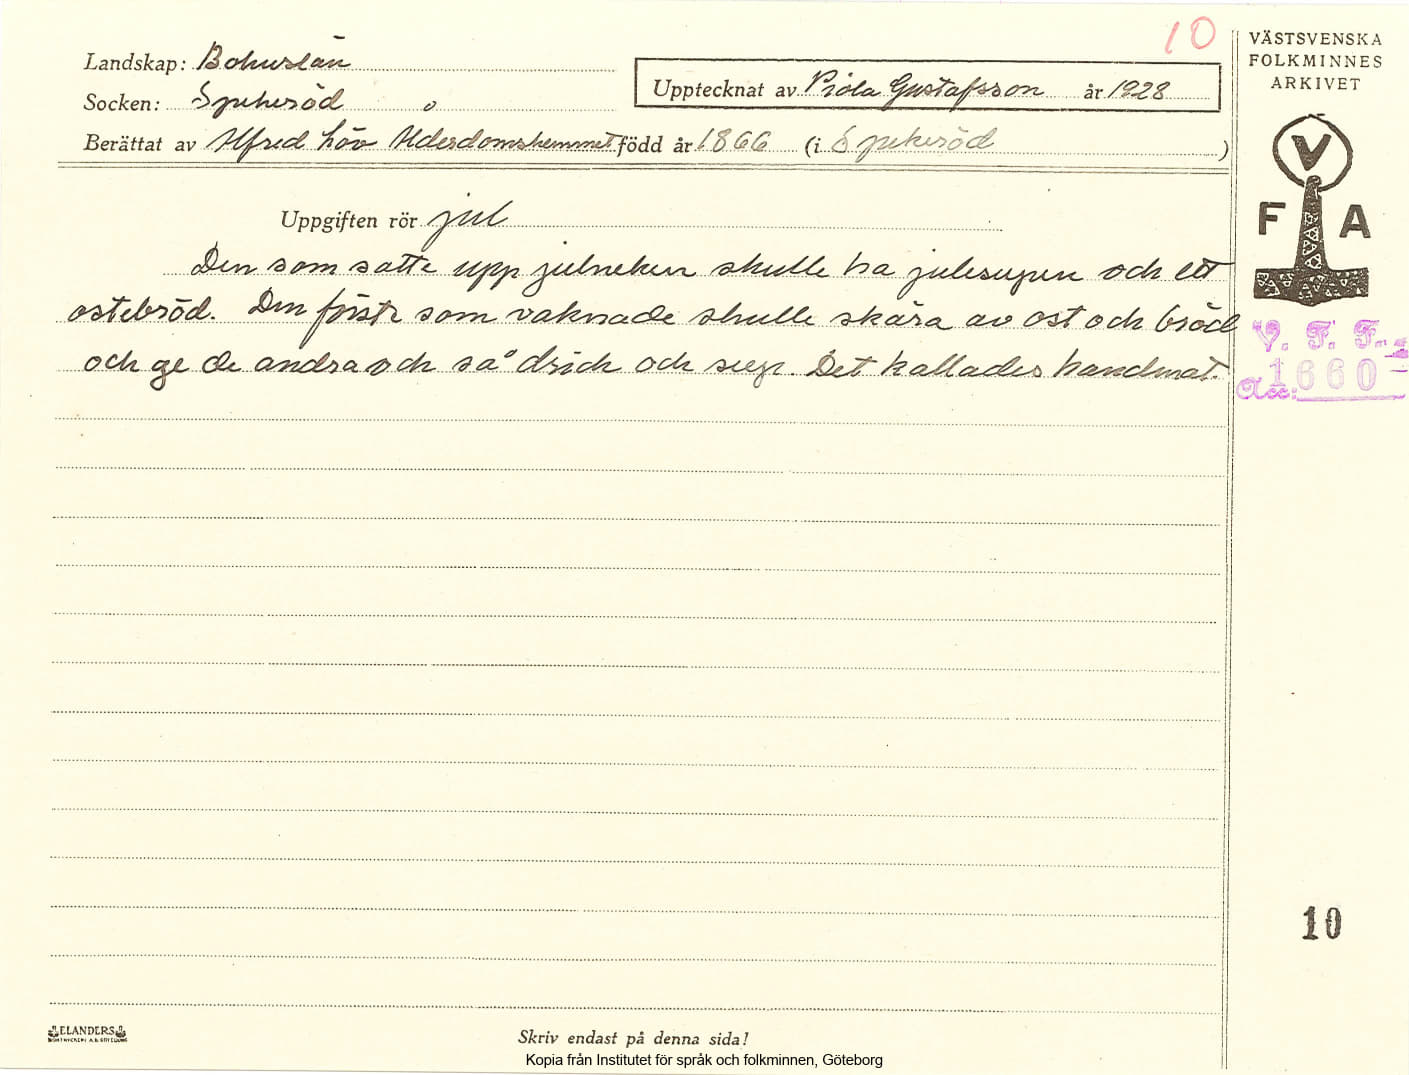 10
VÄSTSVENSKA
FOLKMINNES
ARKIVET
Landskap: Bohuslän
Socken: Spekeröd
Upptecknat av Viola Gustafsson år 1928
Berättat av Alfred Löv Ålderdomshemmet född år 1866 (i Spekeröd )
V
F A
Uppgiften rör jul
Den som satte upp julneken skulle ha julesupen och ett
ostebröd. Den förste som vaknade skulle skära av ost och bröd
och ge de andra och så drick och sup. Det kallades handmat.
V. F. F.
Acc: 1660
10
ELANDERS
Skriv endast på denna sida!
Kopia från Institutet för språk och folkminnen, Göteborg